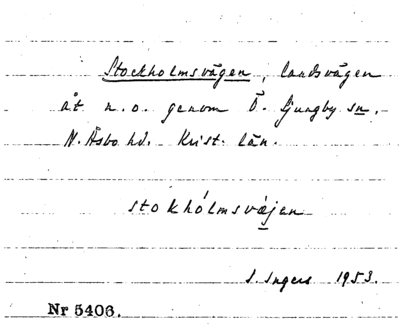 Stockholmsvägen, landsvägen
åt n.o. genom Ö. Ljungby sn.
N. Åsbo hd. Krist. län.
stokhólmsvæjen
I. Ingers 1953.
Nr 5406.